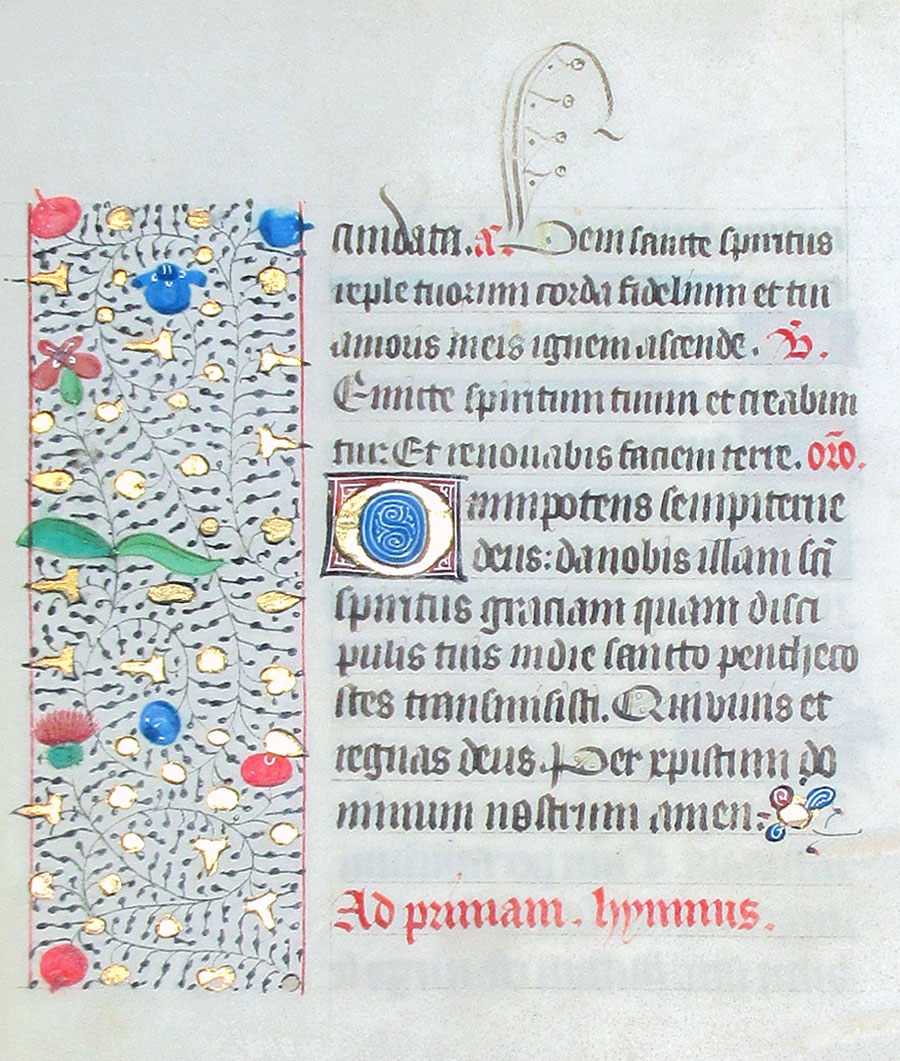 amdata. a. Veni sancte spiritus
reple tuorum corda fidelium et tui
amoris in eis ignem ascende. V.
Emitte spiritum tuum et creabun
tur: Et renouabis faciem terre. oro.
Omnipotens sempiterne
deus: da nobis illam scī
spiritus graciam quam disci
pulis tuis in die sancto pentheco
stes transmisisti. Qui viuis et
regnas deus. Per xpistum do
minum nostrum amen.
Ad primam. hymnus.